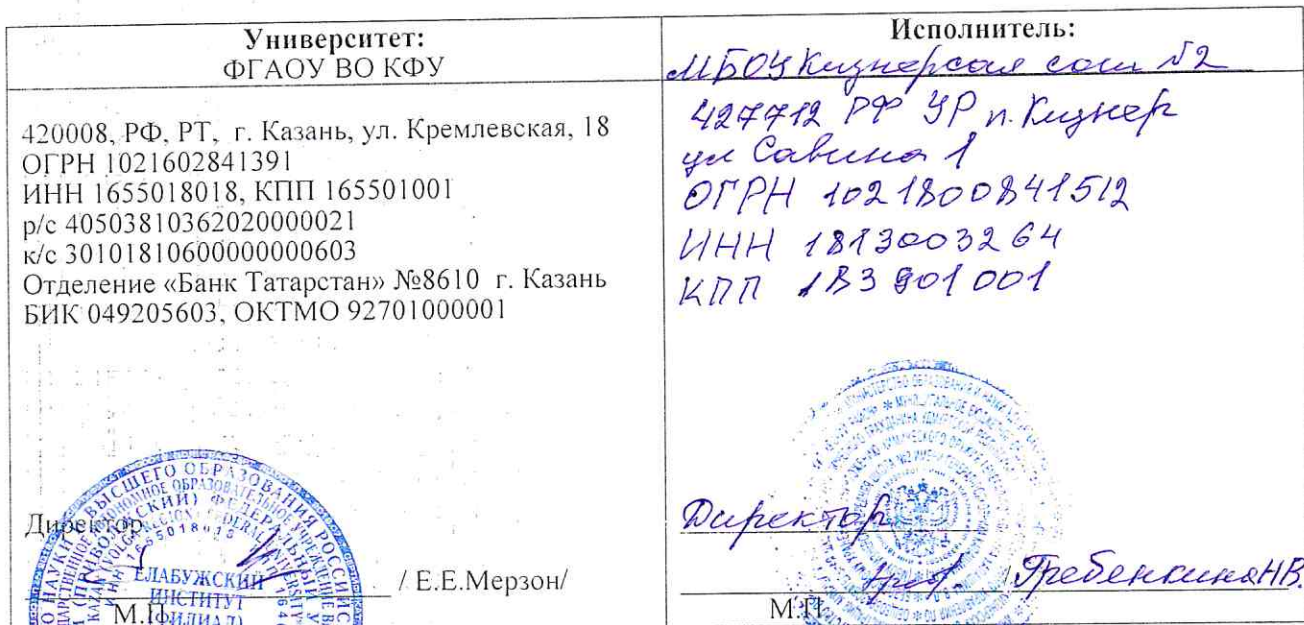 Университет:
ФГАОУ ВО КФУ
420008, РФ, РТ, г. Казань, ул. Кремлевская, 18
ОГРН 1021602841391
ИНН 1655018018, КПП 165501001
р/с 40503810362020000021
к/с 30101810600000000603
Отделение «Банк Татарстан» №8610 г. Казань
БИК 049205603, ОКТМО 92701000001
Директор
/ Е.Е.Мерзон/
М.П.
ЕЛАБУЖСКИЙ
ИНСТИТУТ
Исполнитель:
МБОУ Кизнерская сош №2
427712 РФ УР п. Кизнер
ул Савина 1
ОГРН 1021800841512
ИНН 1813003264
КПП 183901001
Директор
/Гребенкина НВ.
М.П.